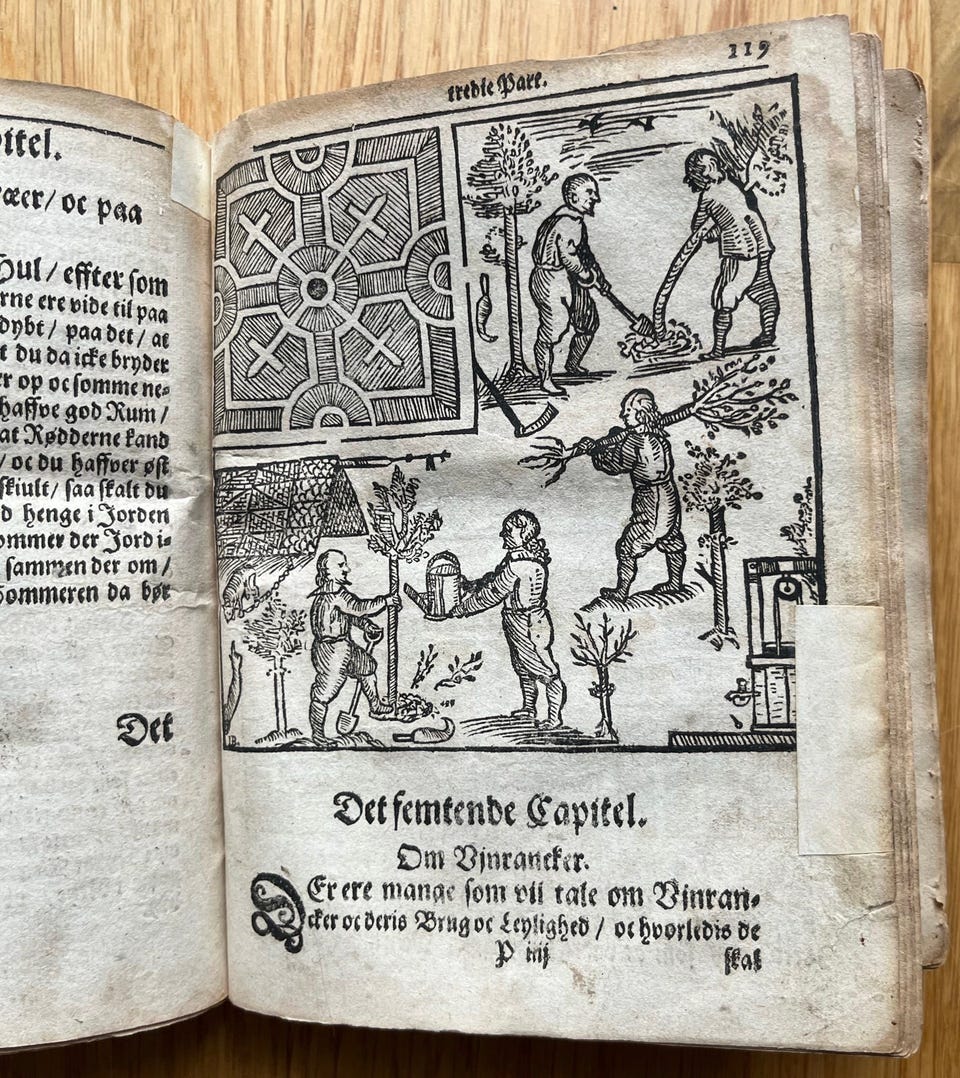 itel.
ræer/ oc paa
Hul / effter som
rne ere vide til paa
dybt / paa det / at
t du da icke bryder
er op oc somme ne-
haffve god Rum /
at Rødderne kand
/ oc du haffver øst
skiult / saa skalt du
d henge i Jorden
ommer der Jord i-
sammen der om /
Sommeren da bør
Det
tredie Part.
119
Det femtende Capitel.
Om Vjnrancker.
DEr ere mange som vil tale om Vjnran-
cker oc deris Brug oc Leylighed / oc hvorledis de
P iiij
skal